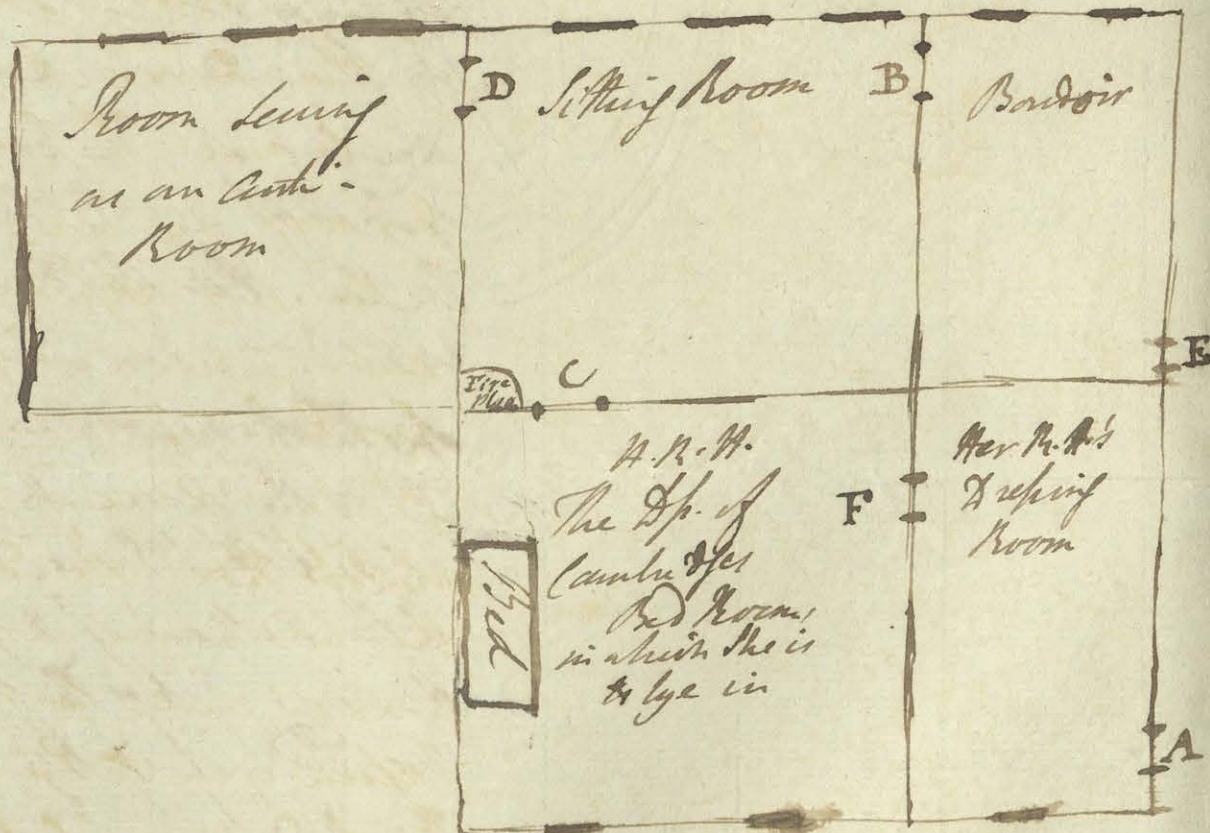 Room serving
as an Anti-
Room
D
Sitting Room
B
Boudoir
E
Fire
Place
C
H.R.H.
The Dss. of
Cambridges
Bed Room,
in which She is
to lye in
Bed
F
Her R.H's
Dressing
Room
A